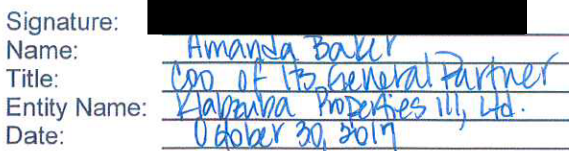 Signature:
Name: Amanda Baker
Title: COO of Its General Partner
Entity Name: Klabzuba Properties III, Ltd.
Date: October 30, 2017